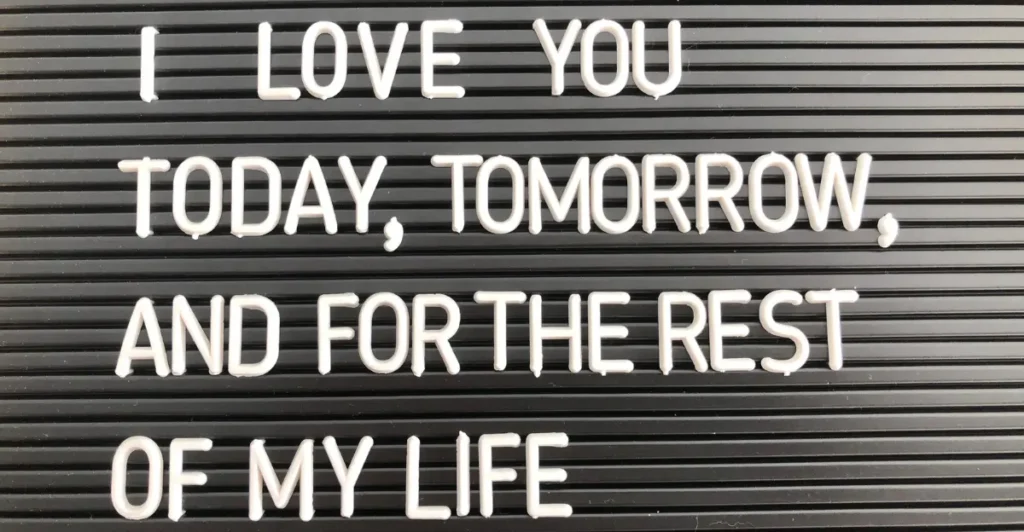 I LOVE YOU
TODAY, TOMORROW,
AND FOR THE REST
OF MY LIFE